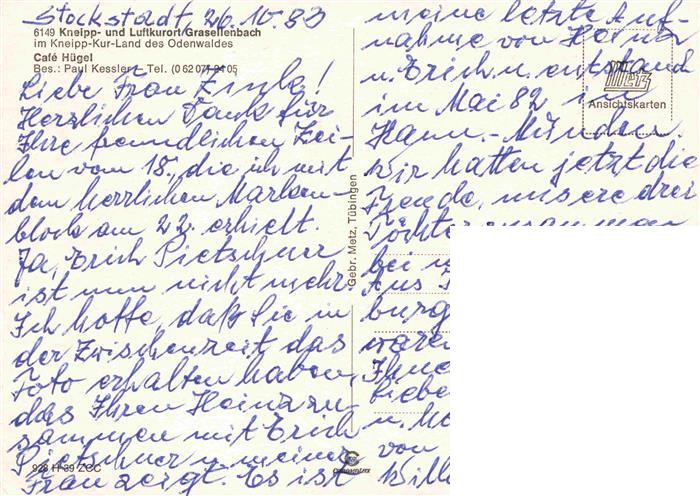 Stockstadt, 26.10.83
6149 Kneipp- und Luftkurort Grasellenbach
im Kneipp-Kur-Land des Odenwaldes
Café Hügel
Bes.: Paul Kessler, Tel. (0 62 07)
Liebe Frau Zink!
Herzlichen Dank für
Ihre freundlichen Zei-
len vom 18., die ich mit
dem herrlichen Marken-
block am 22. erhielt.
Ja, Erich Pietschner
ist nun nicht mehr.
Ich hoffe, daß Sie in
der Zwischenzeit das
Foto erhalten haben,
das Ihren Heinz zu-
sammen mit Erich
Pietschner u. meiner
Frau zeigt. Es ist
928 H 39 ZCC
Gebr. Metz, Tübingen
meine letzte Auf-
nahme von Heinz
u. Erich u. entstand
im Mai 82 in
Hann.-Münden.
Wir hatten jetzt die
Freude, unsere drei
Töchter
bei
Aus
burg
waren
Ihne
liebe
u.
von
Will
Metz
Ansichtskarten